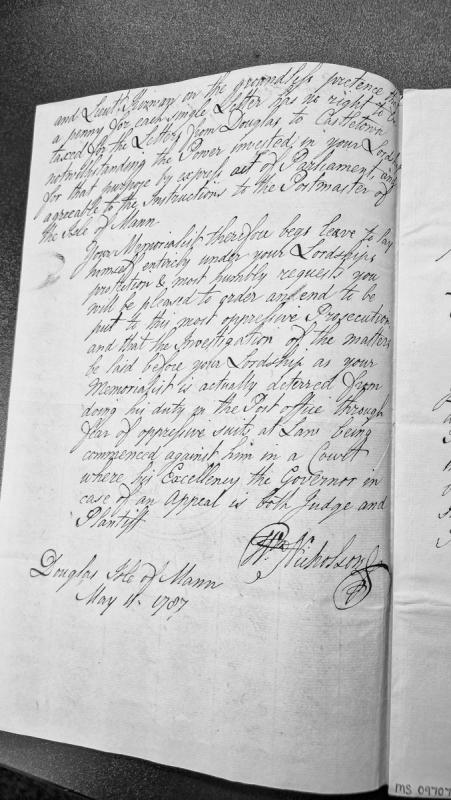 and Lieut.t Kirwan on the groundless pretence that
a penny for each single Letter has no right to be
taxed for the Letters from Douglas to Castletown
notwithstanding the Power invested in your Lordships
for that purpose by express act of Parliament, and
agreeable to the Instructions to the Postmaster of
the Isle of Mann.
Your Memorialist therefore begs leave to lay
himself entirely under your Lordships
protection & most humbly requests you
will be pleased to order an end to be
put to this most oppressive Prosecution
and that the Investigation of the matters
be laid before your Lordship as your
Memorialist is actually deterred from
doing his duty in the Post office through
fear of oppressive suits at Law being
commenced against him in a Court
where his Excellency the Governor in
case of an Appeal is both Judge and
Plaintiff
Wm. Nicholson
Douglas Isle of Mann
May 11. 1787
MS 09707